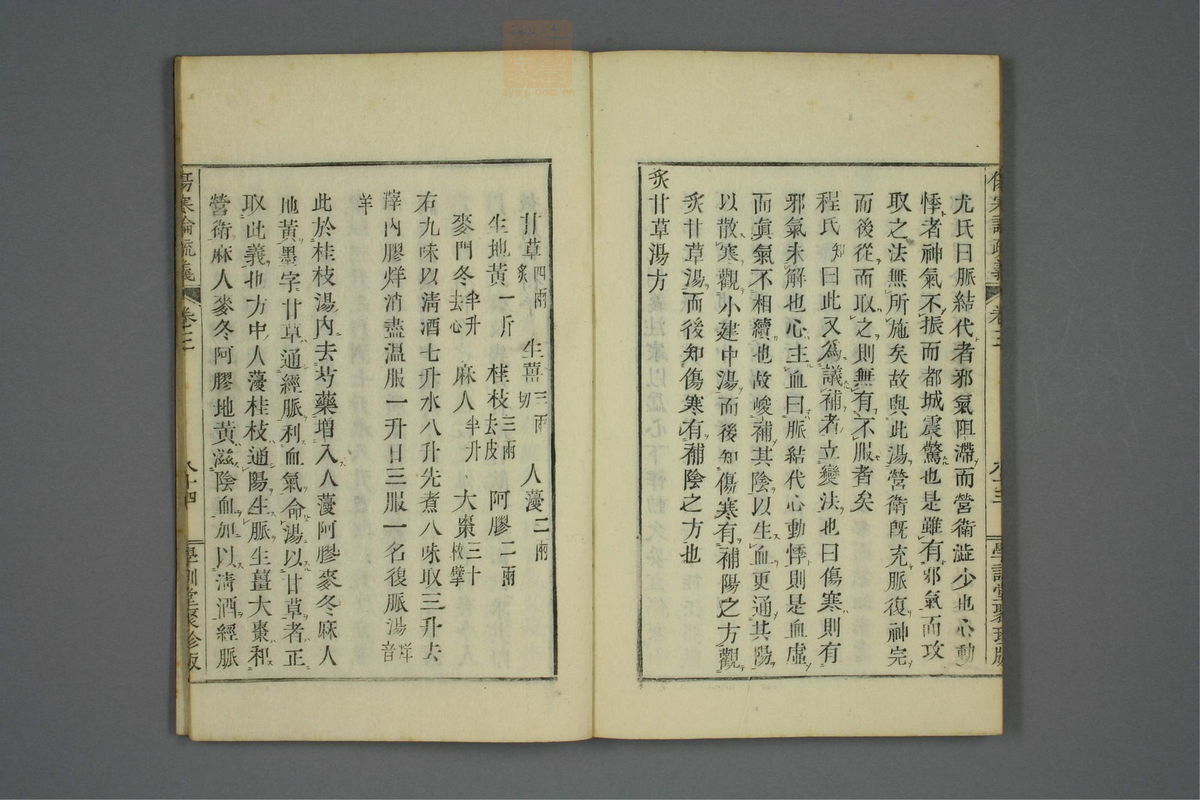 尤氏曰脈結代者邪氣阻滯而營衛澁少也心動
悸者神氣不振而都城震驚也是雖有邪氣而攻
取之法無所施矣故與此湯營衛旣充脈復神完
而後從而取之則無有不服者矣
程氏知曰此又為議補者立變法也曰傷寒則有
邪氣未解也心主血曰脈結代心動悸則是血虛
而眞氣不相續也故峻補其陰以生血更通其陽
以散寒觀小建中湯而後知傷寒有補陽之方觀
炙甘草湯而後知傷寒有補陰之方也
炙甘草湯方
甘草四兩炙 生薑三兩切 人薓二兩
生地黃一斤 桂枝三兩去皮 阿膠二兩
麥門冬半升去心 麻人半升 大棗三十枚擘
右九味以淸酒七升水八升先煮八味取三升去
滓內膠烊消盡溫服一升日三服一名復脈湯烊音
羊
此於桂枝湯內去芍藥增入人薓阿膠麥冬麻人
地黃墨字甘草通經脈利血氣命湯以甘草者正
取此義也方中人薓桂枝通陽生脈生薑大棗和
營衛麻人麥冬阿膠地黃滋陰血加以淸酒經脈
傷寒論疏義 卷三 學訓堂聚珍版